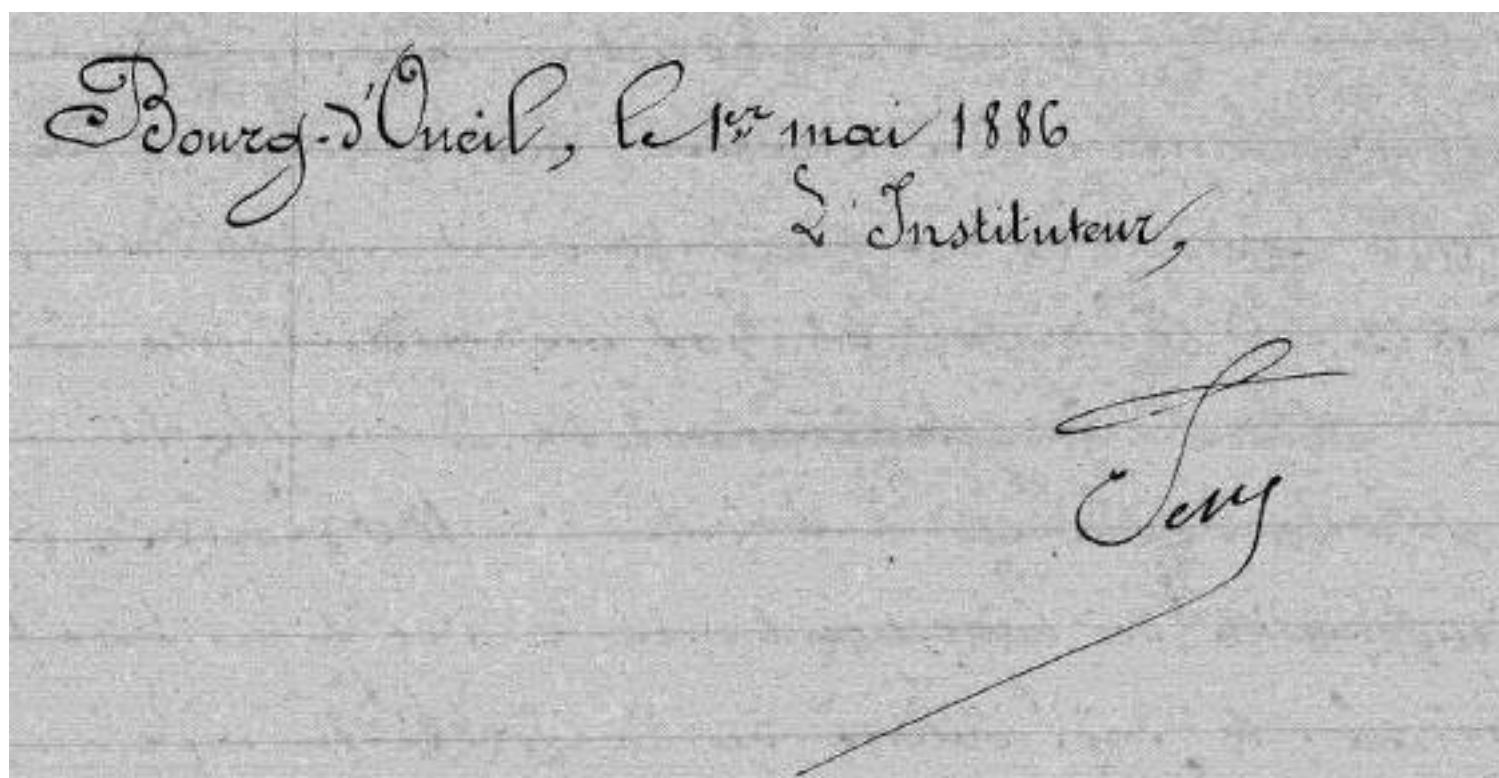 Bourg-d'Oueil, le 1er mai 1886
L'Instituteur,